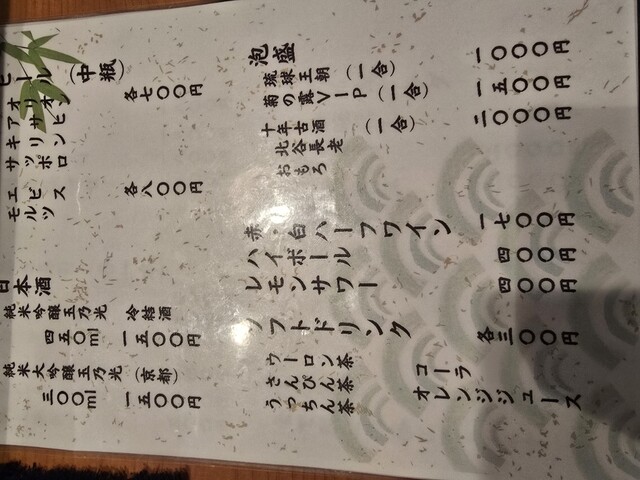 ビール（中瓶）
オリオン
アサヒ
キリン
サッポロ
各七〇〇円
エビス
モルツ
各八〇〇円
日本酒
純米吟醸玉乃光 冷結酒
四五〇ml 一五〇〇円
純米大吟醸玉乃光（京都）
三〇〇ml 一五〇〇円
泡盛
琉球王朝（一合） 一〇〇〇円
菊の露VIP（一合） 一五〇〇円
十年古酒（一合） 二〇〇〇円
北谷長老
おもろ
赤・白ハーフワイン 一七〇〇円
ハイボール 四〇〇円
レモンサワー 四〇〇円
ソフトドリンク 各三〇〇円
ウーロン茶
さんぴん茶
うっちん茶
コーラ
オレンジジュース